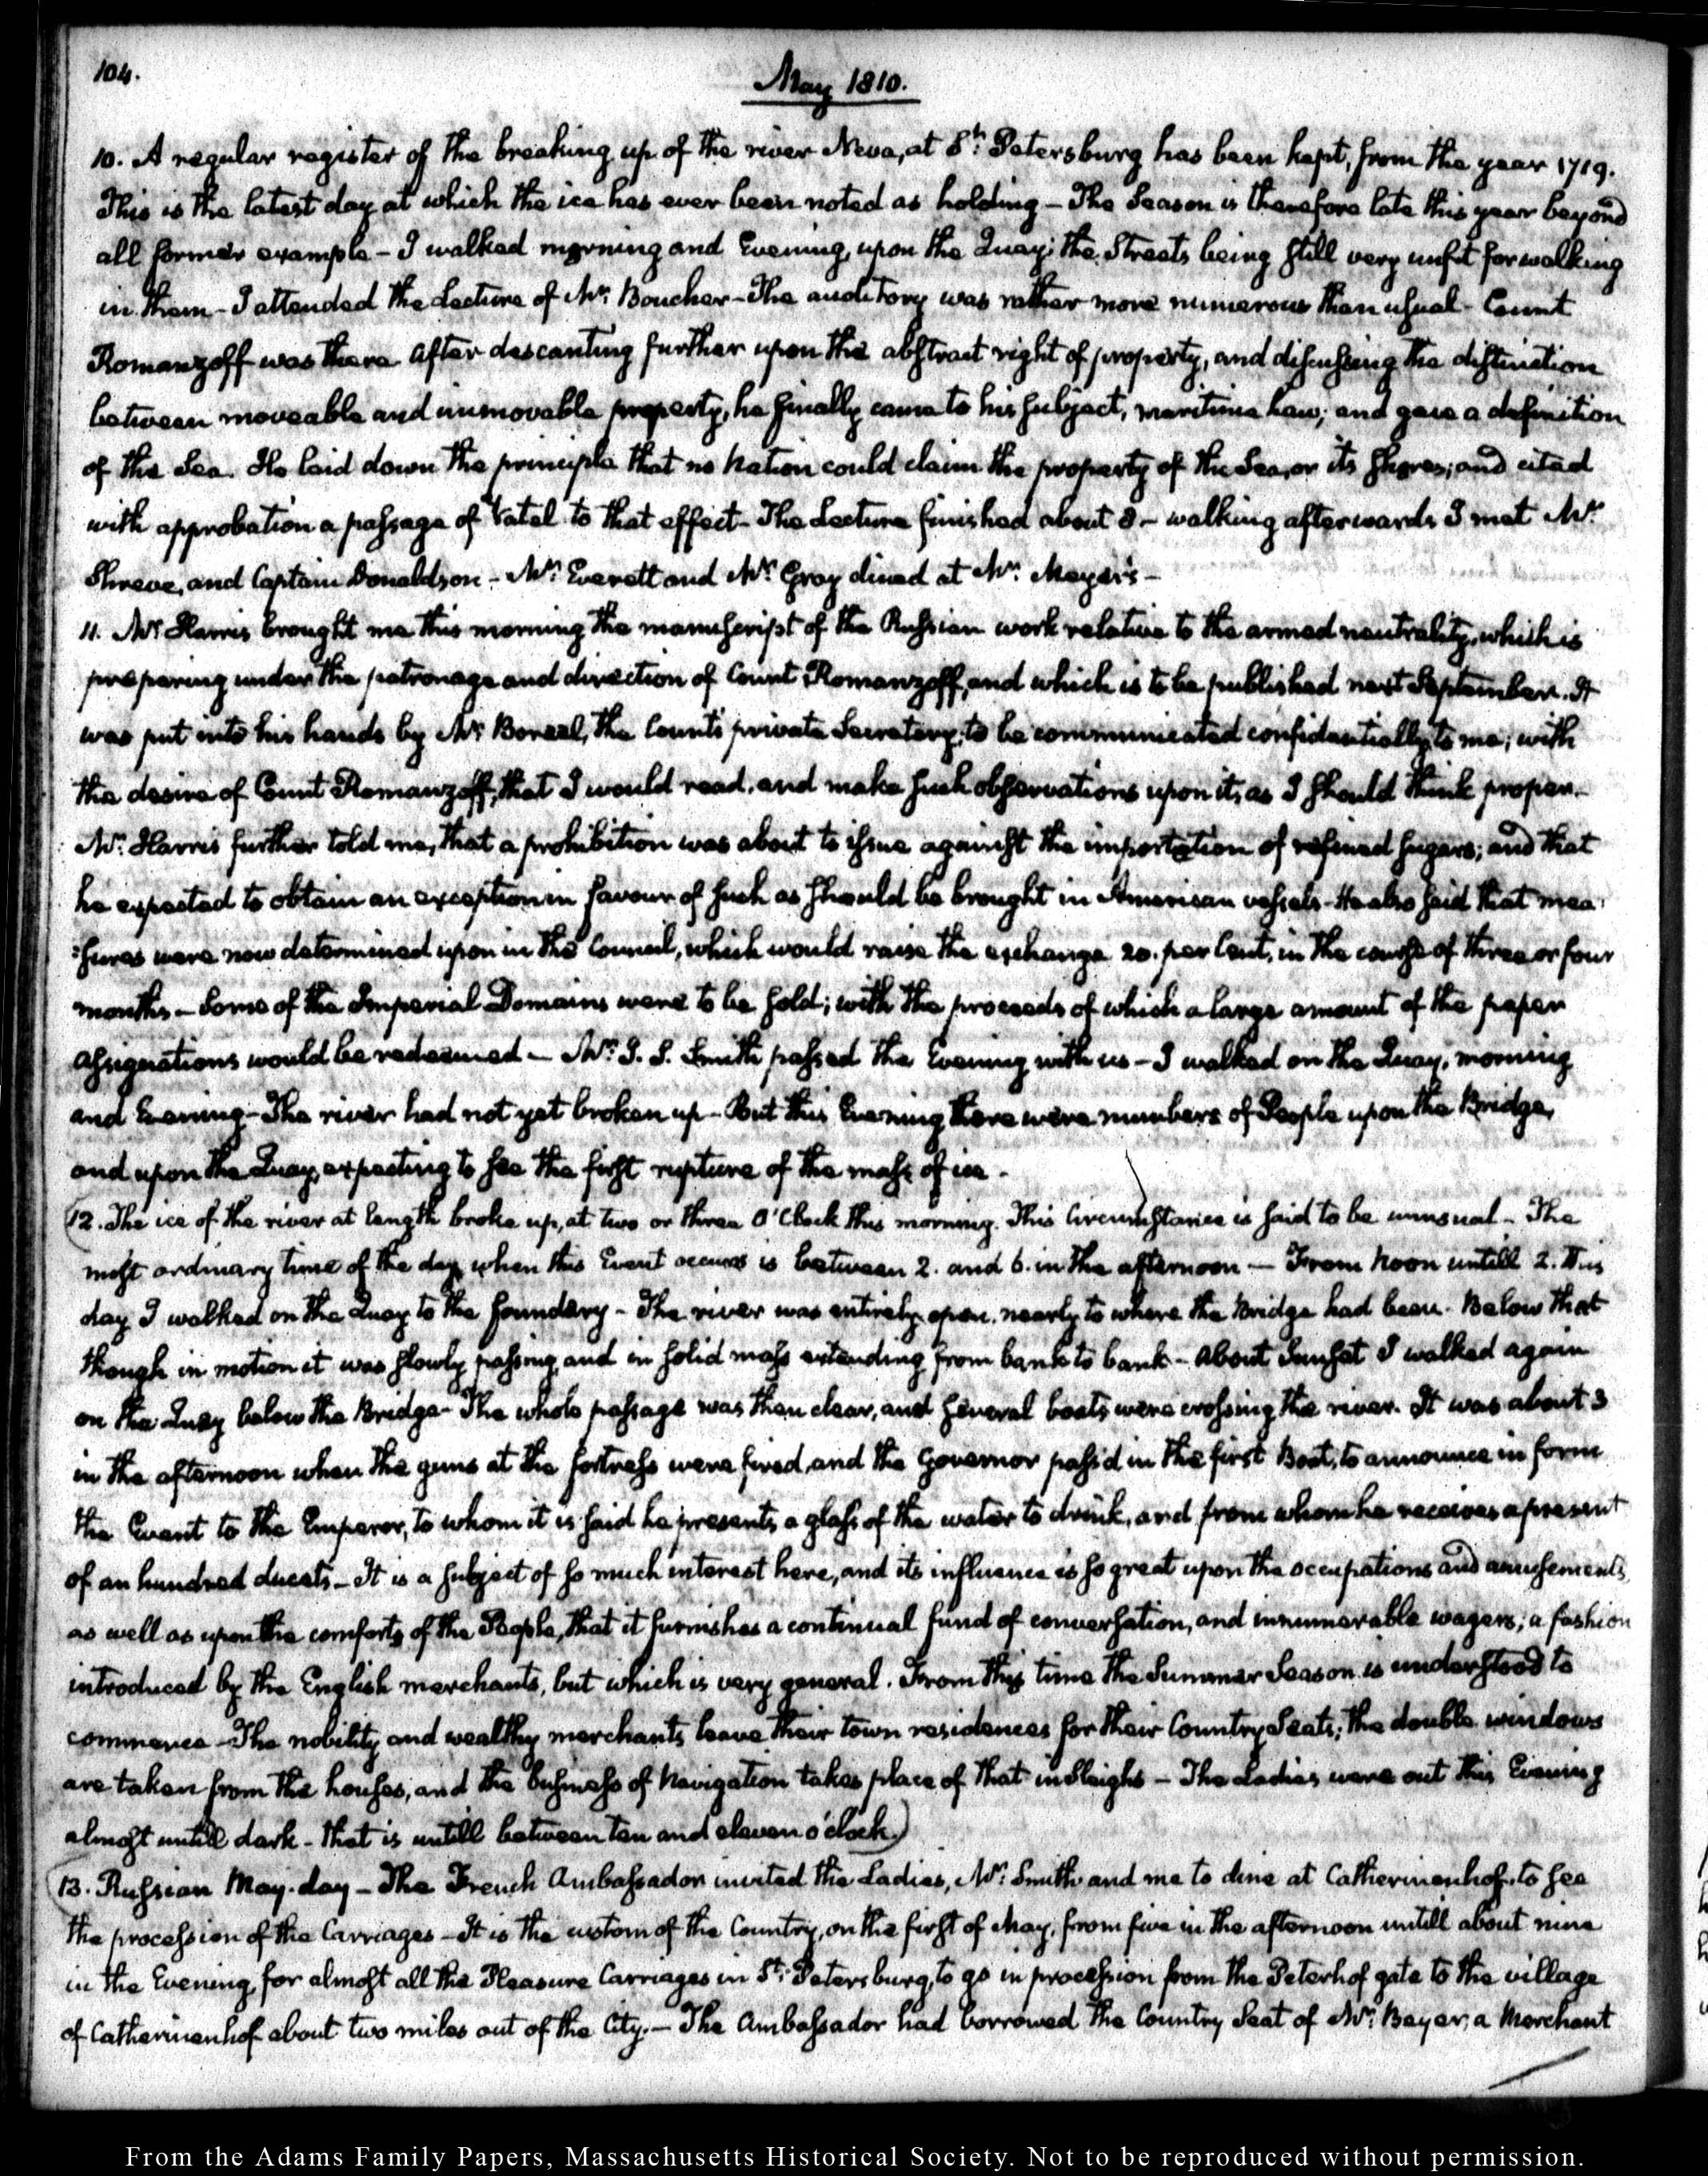 104.
May 1810.
10. A regular register of the breaking up of the river Neva, at St: Petersburg has been kept, from the year 1719.
This is the latest day at which the ice has ever been noted as holding - The Season is therefore late this year beyond
all former example - I walked morning and Evening, upon the Quay; the Streets being still very unfit for walking
in them - I attended the Lecture of Mr: Boucher - The auditory was rather more numerous than usual - Count
Romanzoff was there after descanting further upon the abstract right of property, and discussing the distinction
between moveable and immovable property, he finally came to his subject, maritime Law; and gave a definition
of the Sea. He laid down the principle that no Nation could claim the property of the Sea, or its shores; and cited
with approbation a passage of Vatel to that effect - The Lecture finished about 8 - walking afterwards I met Mr:
Shreve, and Captain Donaldson - Mr: Everett and Mr: Gray dined at Mr: Meyer's -
11. Mr: Harris brought me this morning the manuscript of the Russian work relative to the armed neutrality, which is
preparing under the patronage and direction of Count Romanzoff, and which is to be published next September. It
was put into his hands by Mr: Boreal, the Count's private Secretary, to be communicated confidentially to me; with
the desire of Count Romanzoff, that I would read, and make such observations upon it, as I should think proper.-
Mr: Harris further told me, that a prohibition was about to issue against the importation of refined sugars; and that
he expected to obtain an exception in favour of such as should be brought in American vessels - He also said that mea:
:sures were now determined upon in the Council, which would raise the exchange 20. per Cent, in the course of three or four
months - Some of the Imperial Domains were to be sold; with the proceeds of which a large amount of the paper
assignations would be redeemed - Mr: J. S. Smith passed the Evening with us - I walked on the Quay, morning
and Evening - The river had not yet broken up - But this Evening there were numbers of People upon the Bridge,
and upon the Quay, expecting to see the first rupture of the mass of ice -
(12. The ice of the river at length broke up, at two or three O'Clock this morning. This Circumstance is said to be unusual - The
most ordinary time of the day when this Event occurs is between 2. and 6. in the afternoon - From Noon untill 2. this
day I walked on the Quay to the foundery - The river was entirely open, nearly to where the Bridge had been. Below that
though in motion it was slowly passing and in solid mass extending from bank to bank - About Sunset I walked again
on the Quay below the Bridge - The whole passage was then clear, and several boats were crossing the river. It was about 3
in the afternoon when the guns at the fortress were fired, and the Governor pass'd in the first Boat, to announce in form
the Event to the Emperor, to whom it is said he presents a glass of the water to drink, and from whom he receives a present
of an hundred ducats - It is a subject of so much interest here, and its influence is so great upon the occupations and amusements
as well as upon the comforts of the People, that it furnishes a continual fund of conversation, and innumerable wagers; a fashion
introduced by the English merchants, but which is very general. From this time the Summer Season is understood to
commence - The nobility and wealthy merchants leave their town residences for their Country Seats; the double windows
are taken from the houses, and the business of Navigation takes place of that in Sleighs - The Ladies were out this Evening
almost untill dark - that is untill between ten and eleven o'clock.)
(13. Russian May-day - The French Ambassador invited the Ladies, Mr: Smith and me to dine at Catherinenhof, to see
the procession of the Carriages - It is the custom of the Country, on the first of May, from five in the afternoon untill about nine
in the Evening, for almost all the Pleasure Carriages in St: Petersburg, to go in procession from the Peterhof gate to the village
of Catherinenhof about two miles out of the City. - The Ambassador had borrowed the Country Seat of Mr: Beyer, a Merchant
From the Adams Family Papers, Massachusetts Historical Society. Not to be reproduced without permission.